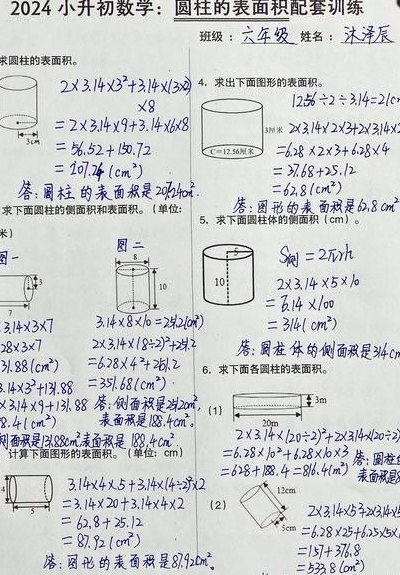 2024 小升初数学：圆柱的表面积配套训练
班级：六年级 姓名：沐泽辰
求圆柱的表面积。
3cm
2×3.14×3²+3.14×(3×2)
×8
=2×3.14×9+3.14×6×8
=56.52+150.72
答：圆柱的表面积是
求下面圆柱的侧面积和表面积。（单位：
米）
图一
3
7
3.14×3×7
28×3×7
31.88(cm²)
3.14×3²+131.88
×3.14×9+131.88
8.4(cm²)
侧面积是131.88cm²表面积是188.4cm²
图二
8
10
3.14×8×10=251.2(cm²)
2×3.14×(8÷2)²+251.2
=6.28×4²+251.2
=351.68(cm²)
答：侧面积是251.2cm²,
表面积是188.4cm².
计算下面图形的表面积。（单位：cm）
4
5
3.14×4×5+3.14×(4÷2)²×2
=3.14×20+3.14×4×2
=62.8+25.12
=87.92(cm²)
答：图形的表面积是87.92cm².
4．求出下面图形的表面积。
C=12.56厘米
3厘米
12.56÷2÷3.14=2(c
2×3.14×2×3+2×3.14×2
=6.28×2×3+6.28×4
=37.68+25.12
=62.8(cm²)
答：图形的表面积是62.8cm²
5．求下面圆柱体的侧面积（cm）。
5
10
S侧=2πrh
2×3.14×5×10
=6.14×100
=314(cm²)
答：圆柱体的侧面积是314cm
6．下面各圆柱的表面积。
(1)
3m
20m
2×3.14×(20÷2)²+2×3.14×(20÷2)
=6.28×10²+6.28×10×3
=628+188.4=816.4(m²)
答：圆柱
表面积是8
(2)
12cm
5cm
2×3.14×5²+2×3.14×5
=6.28×25+6.28×5×
=157+376.8
=533.8(cm²)